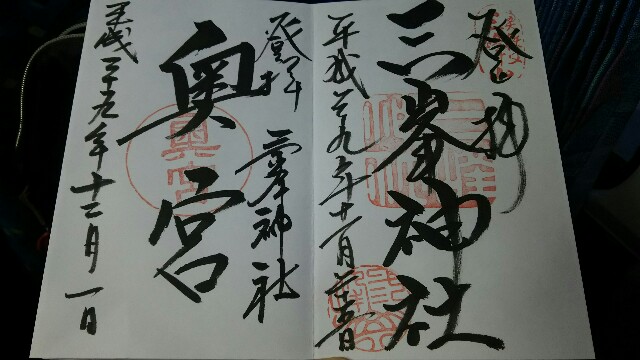 登拝
三峯神社
平成二十九年十二月一日
登拝 三峯神社
奥宮
奥宮
平成二十九年十二月一日